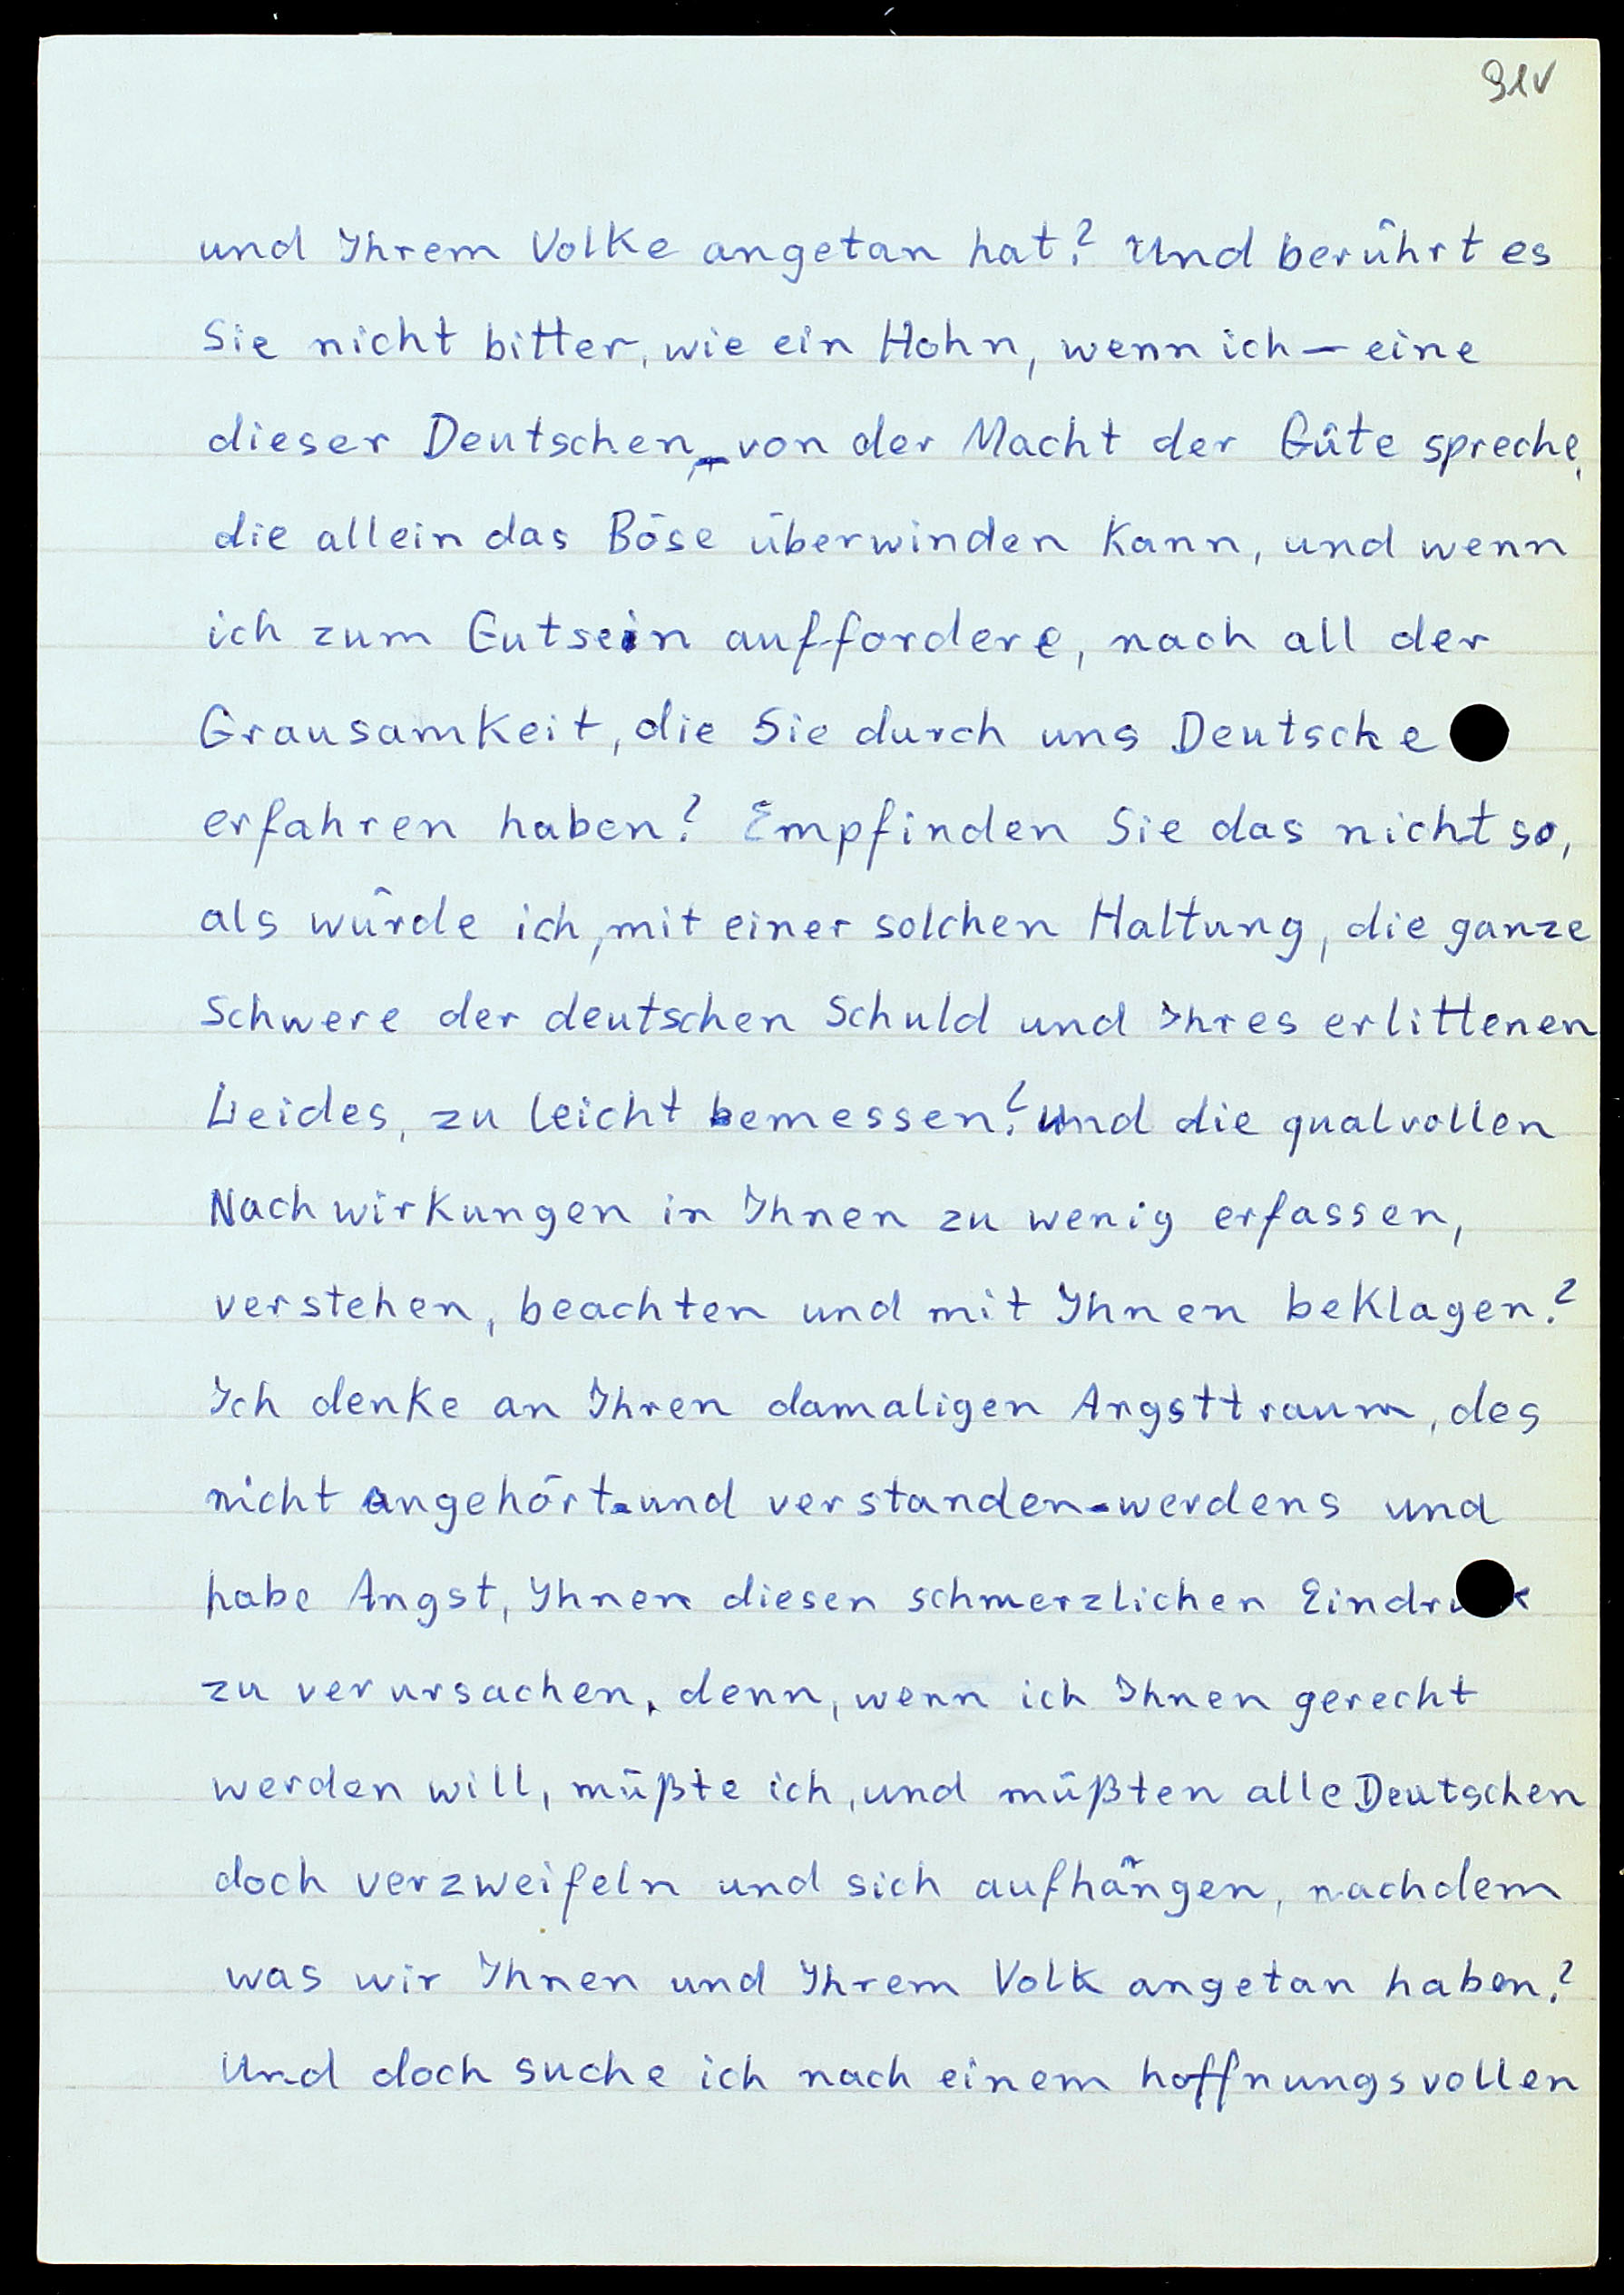 91v
und Ihrem Volke angetan hat? Und berührt es
Sie nicht bitter, wie ein Hohn, wenn ich — eine
dieser Deutschen – von der Macht der Güte spreche,
die allein das Böse überwinden kann, und wenn
ich zum Gutsein auffordere, nach all der
Grausamkeit, die Sie durch uns Deutsche
erfahren haben? Empfinden Sie das nicht so,
als würde ich, mit einer solchen Haltung, die ganze
Schwere der deutschen Schuld und Ihres erlittenen
Leides, zu leicht bemessen? Und die qualvollen
Nachwirkungen in Ihnen zu wenig erfassen,
verstehen, beachten und mit Ihnen beklagen?
Ich denke an Ihren damaligen Angsttraum, des
nicht angehört-und verstanden-werdens und
habe Angst, Ihnen diesen schmerzlichen Eindruck
zu verursachen, denn, wenn ich Ihnen gerecht
werden will, müßte ich, und müßten alle Deutschen
doch verzweifeln und sich aufhängen, nachdem
was wir Ihnen und Ihrem Volk angetan haben?
Und doch suche ich nach einem hoffnungsvollen